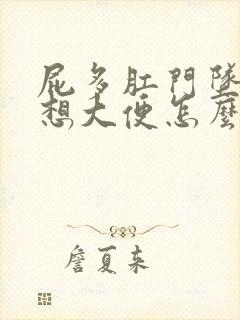 屁多肛門墜
想大便怎麼
詹夏來